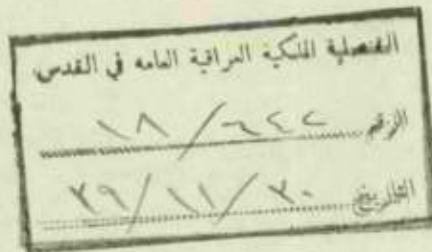 القنصلية الملكية العراقية العامه في القدس
الرقم ١٨/٦٢٢
التاريخ ٣٠/١١/٣٩